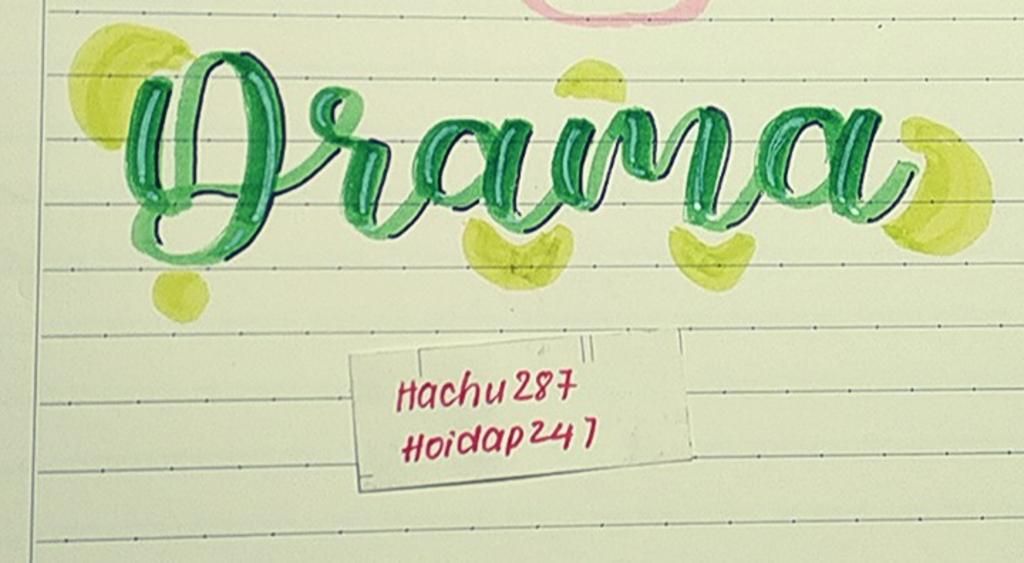 Drama
Hachu287
Hoidap247